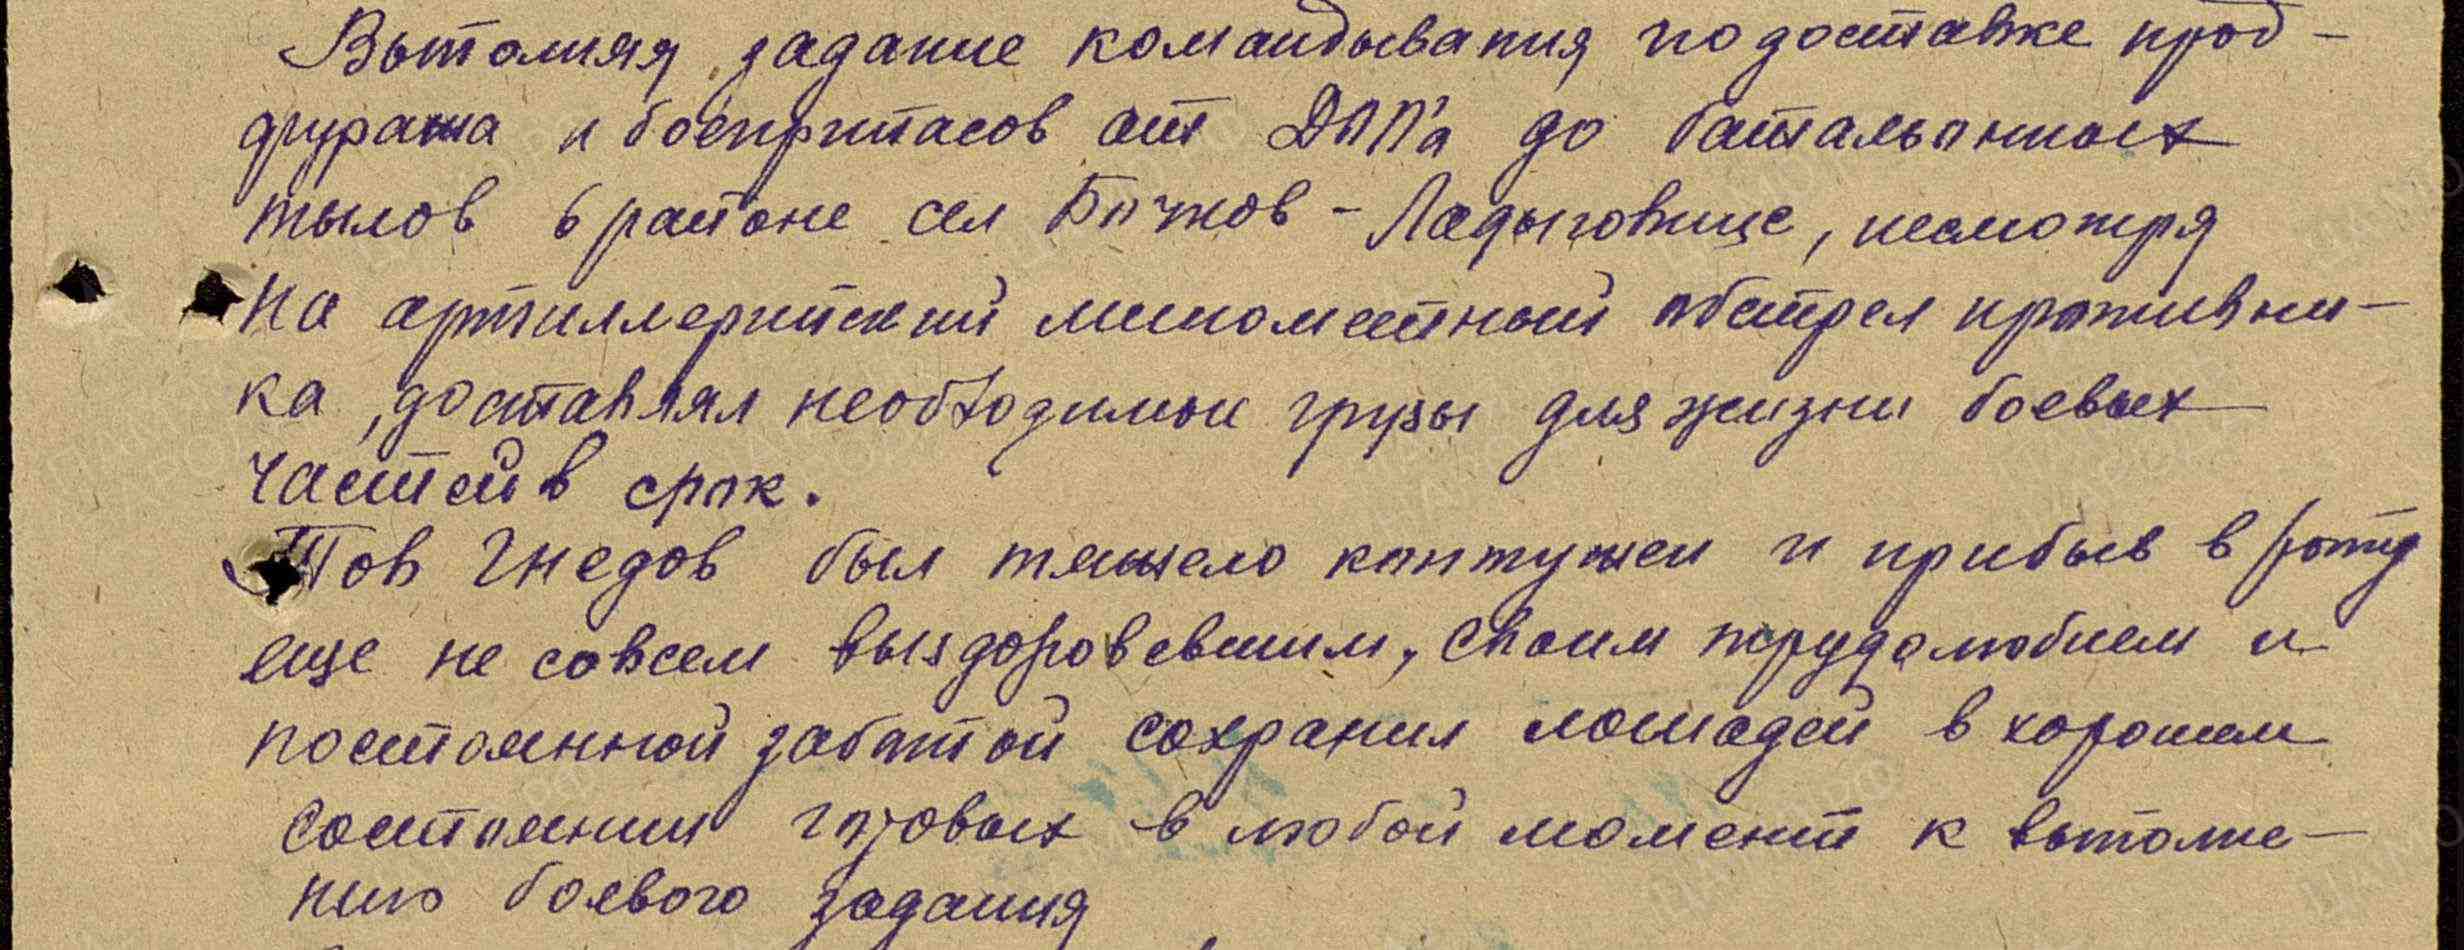 Выполняя задание командывания по доставке прод-
фуража и боеприпасов от ДПП'а до батальонных
тылов в районе сел Бочков - Ладыговище, несмотря
на артиллерийский минометный обстрел противни-
ка, доставлял необходимые грузы для жизни боевых
частей в срок.
Тов Гнедов был тяжело контужен и прибыв в роту
еще не совсем выздоровевшим, своим трудолюбием и
постоянной заботой сохранил лошадей в хорошем
состоянии готовых в любой момент к выполне-
нию боевого задания